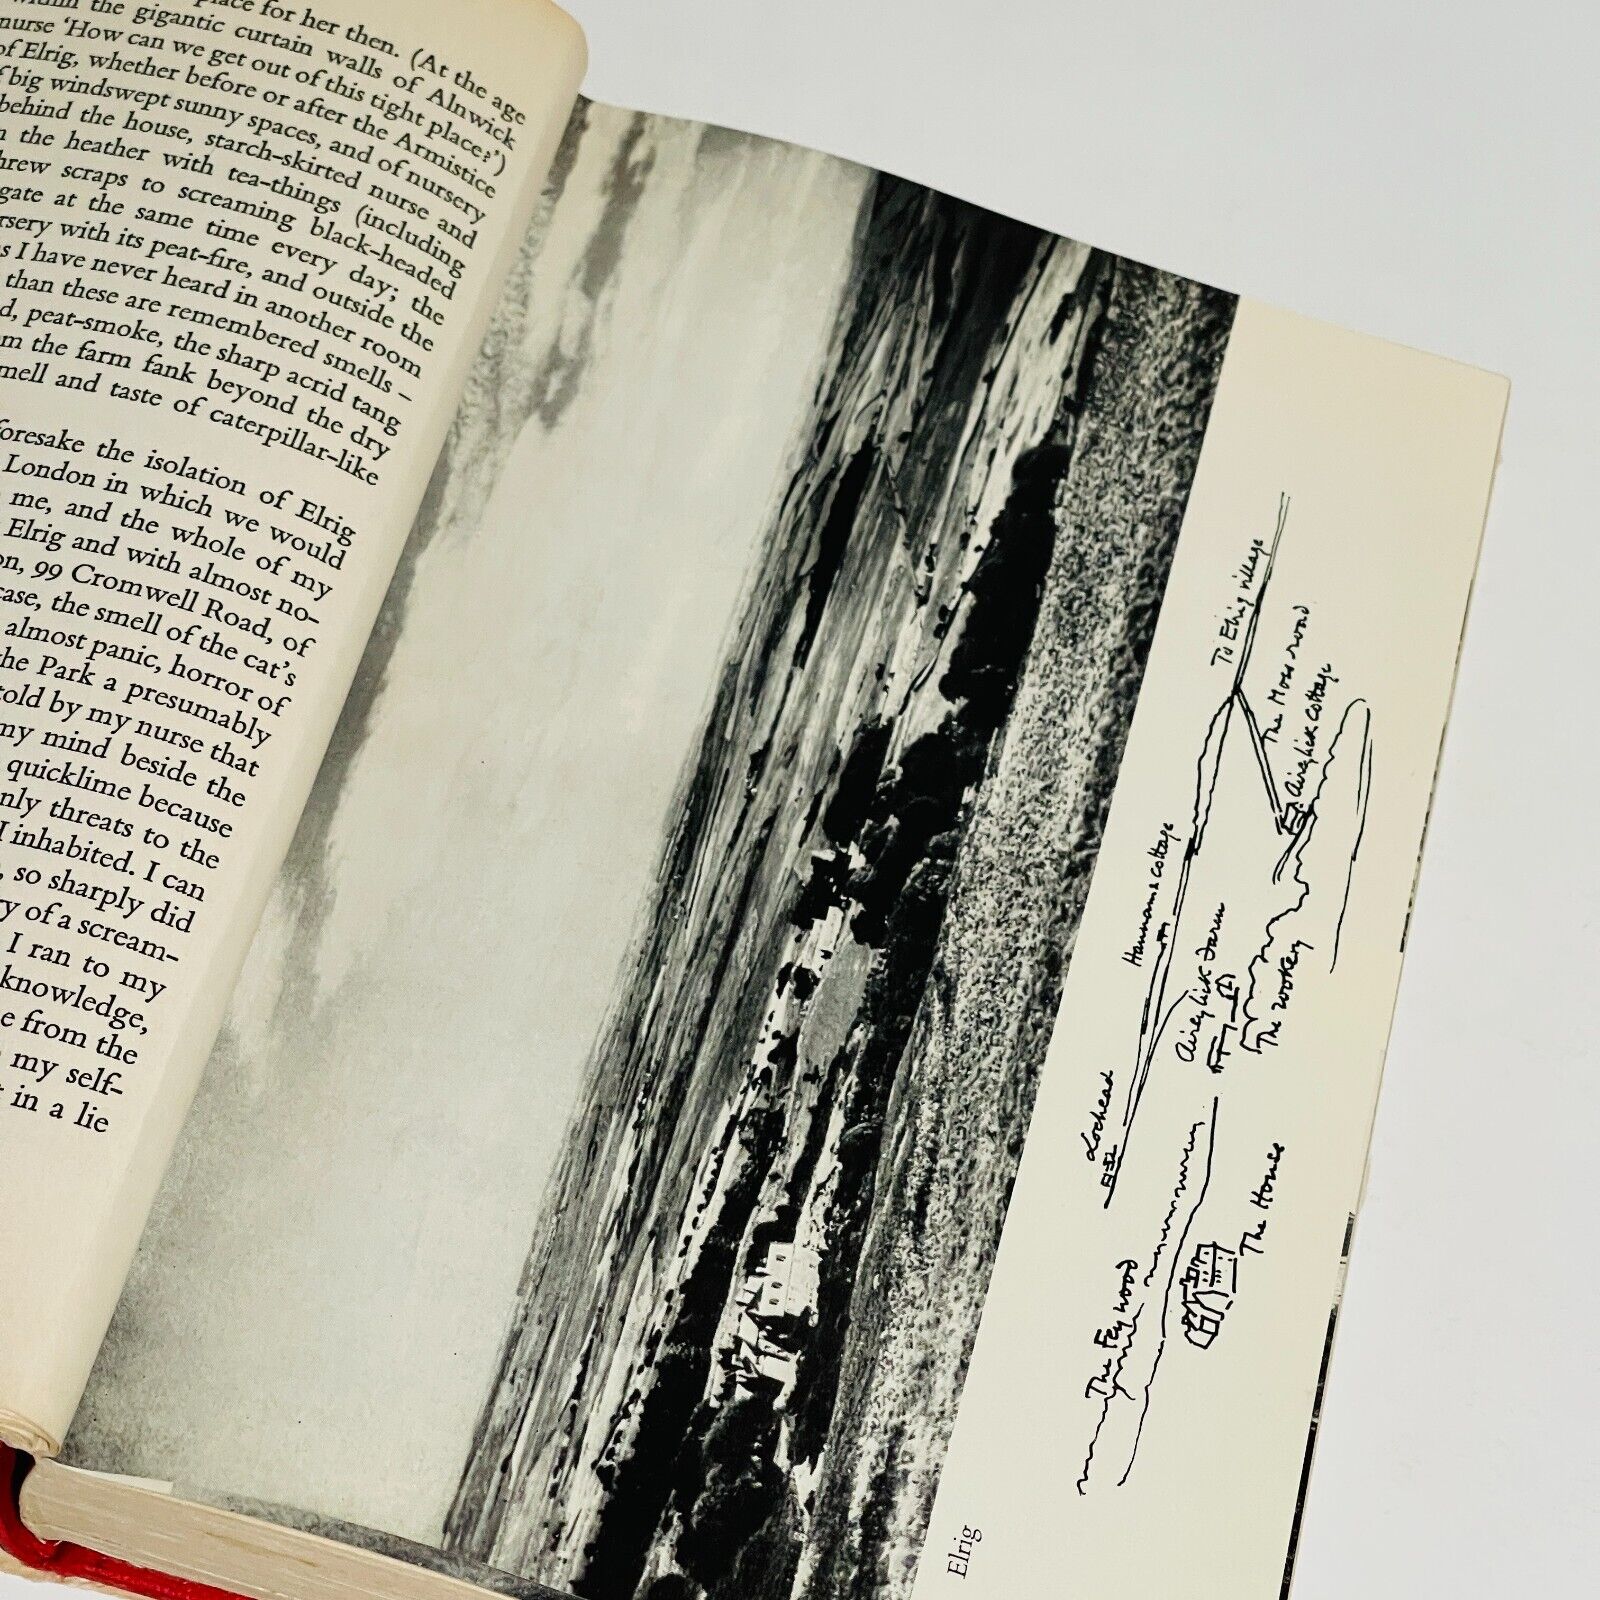 place for her then. (At the age
within the gigantic curtain walls of Alnwick
nurse ‘How can we get out of this tight place?’)
of Elrig, whether before or after the Armistice
big windswept sunny spaces, and of nursery
behind the house, starch-skirted nurse and
the heather with tea-things (including
threw scraps to screaming black-headed
gate at the same time every day; the
nursery with its peat-fire, and outside the
as I have never heard in another room
than these are remembered smells –
peat-smoke, the sharp acrid tang
from the farm fank beyond the dry
smell and taste of caterpillar-like
foresake the isolation of Elrig
London in which we would
me, and the whole of my
Elrig and with almost no-
on, 99 Cromwell Road, of
case, the smell of the cat’s
almost panic, horror of
the Park a presumably
told by my nurse that
my mind beside the
quicklime because
only threats to the
I inhabited. I can
so sharply did
of a scream-
I ran to my
knowledge,
from the
my self-
in a lie
Elrig
To Elrig village
The Moss road
Airylick Cottage
Hannan's Cottage
Airylick Farm
The Rookery
Lochead
The Fey wood
The House